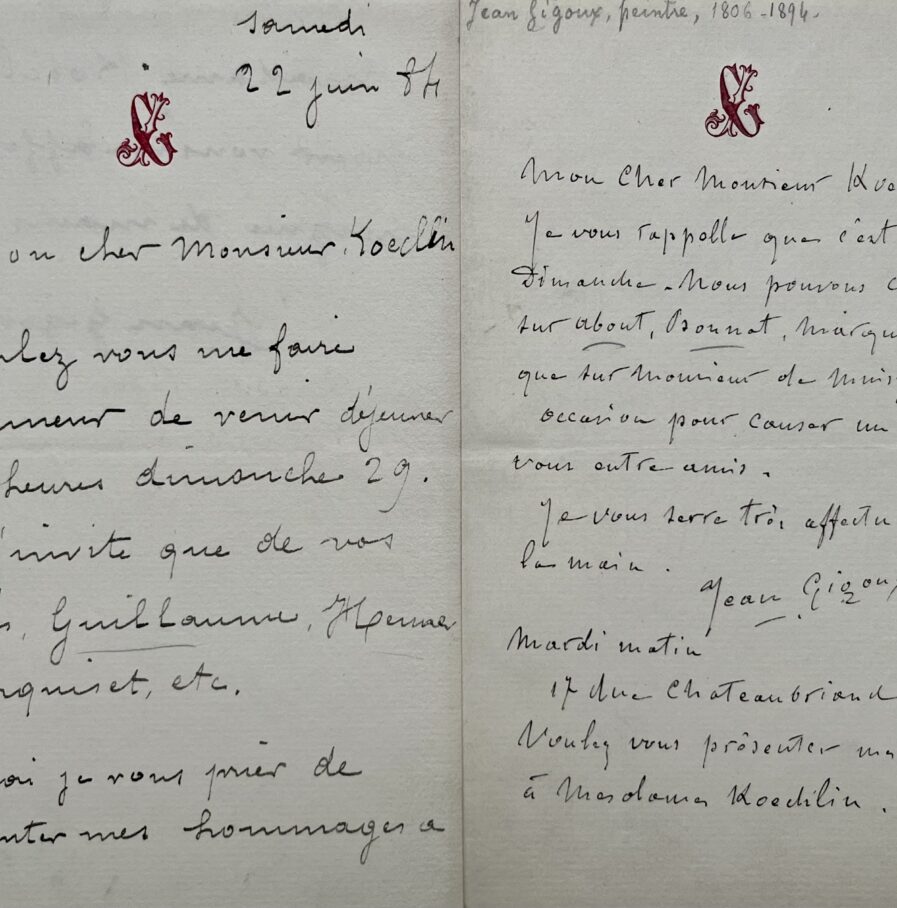 Samedi
22 juin 84
on cher Monsieur Koechlin
ulez vous me faire
nneur de venir déjeuner
heures dimanche 29.
'invite que de vos
s, Guillaume, Henner
rquiset, etc.
oi je vous prier de
nter mes hommages a
Jean Gigoux, peintre, 1806-1894.
Mon Cher Monsieur Koe
Je vous rappelle que c'est
Dimanche. Nous pouvons c
sur About, Bonnat, Marqui
que sur Monsieur de
occasion pour causer un
vous entre amis.
Je vous serre très affectu
la main.
Jean Gigoux
Mardi matin
17 rue Chateaubriand
Voulez vous présenter me
à Mesdames Koechlin.